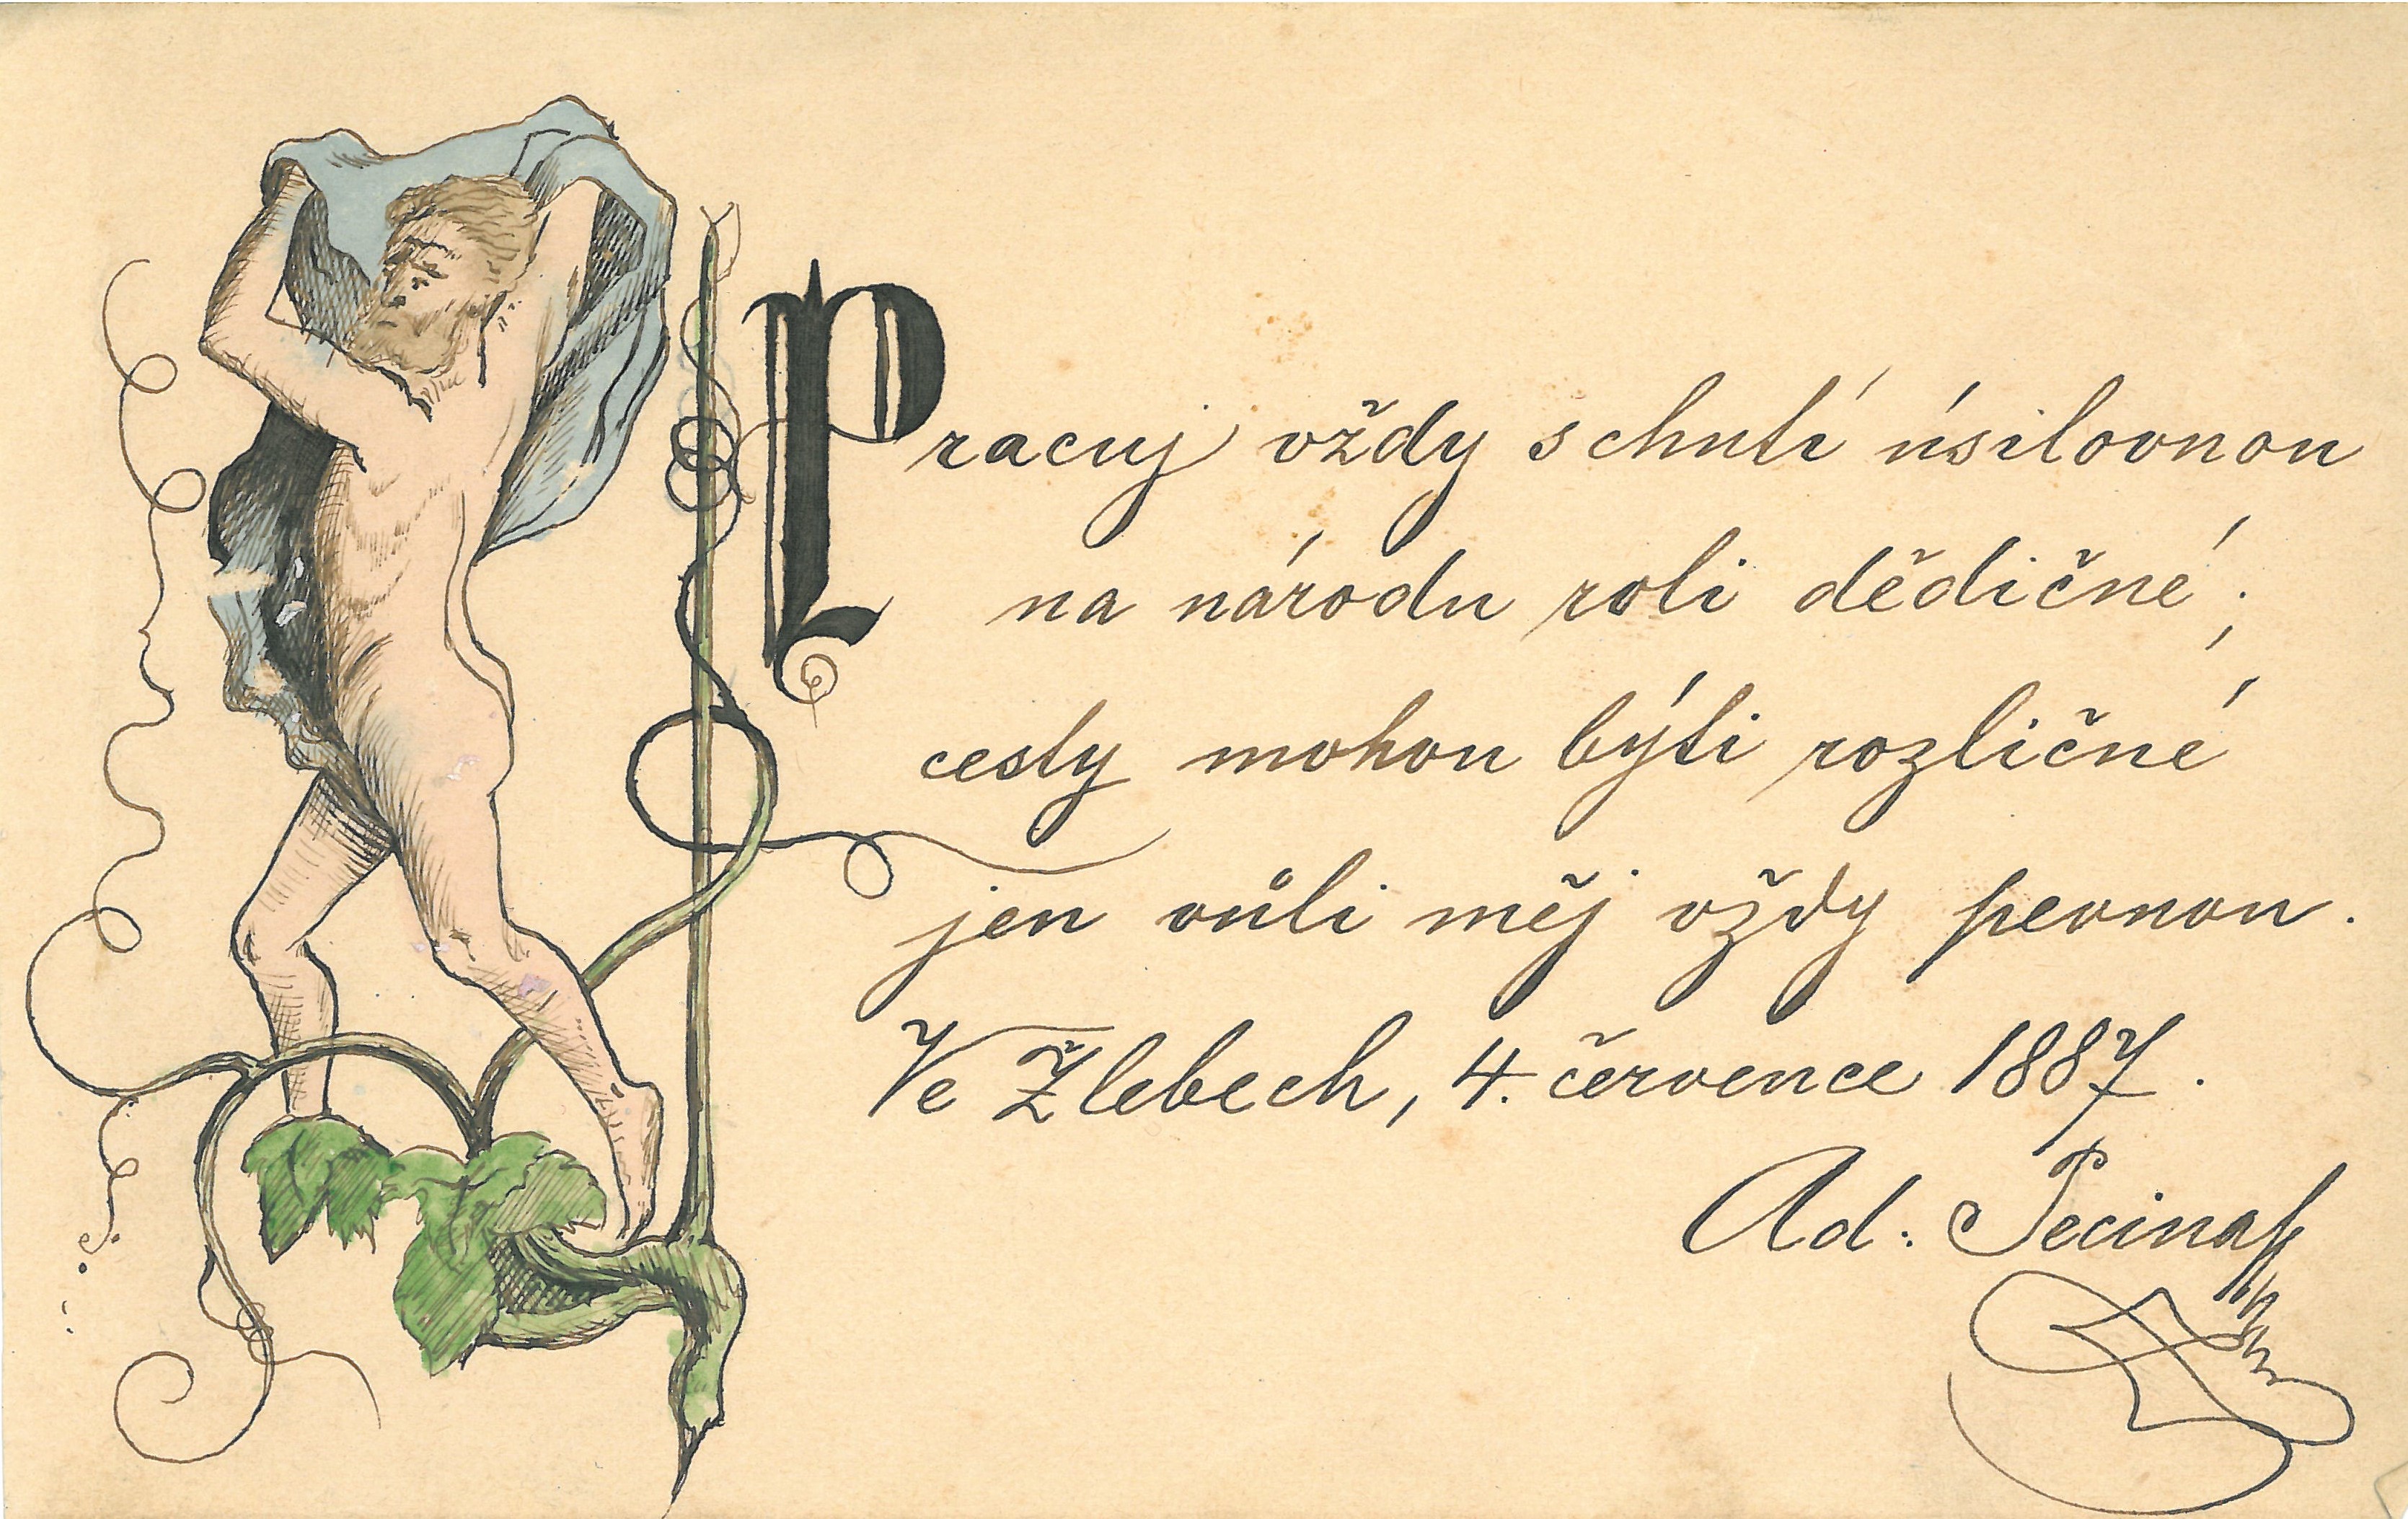 Pracuj vždy s chutí úsilovnou
na národu roli dědičné;
cesty mohou býti rozličné
jen vůli měj vždy pevnou.
Ve Žlebech, 4. července 1887.
Ad: Pecina